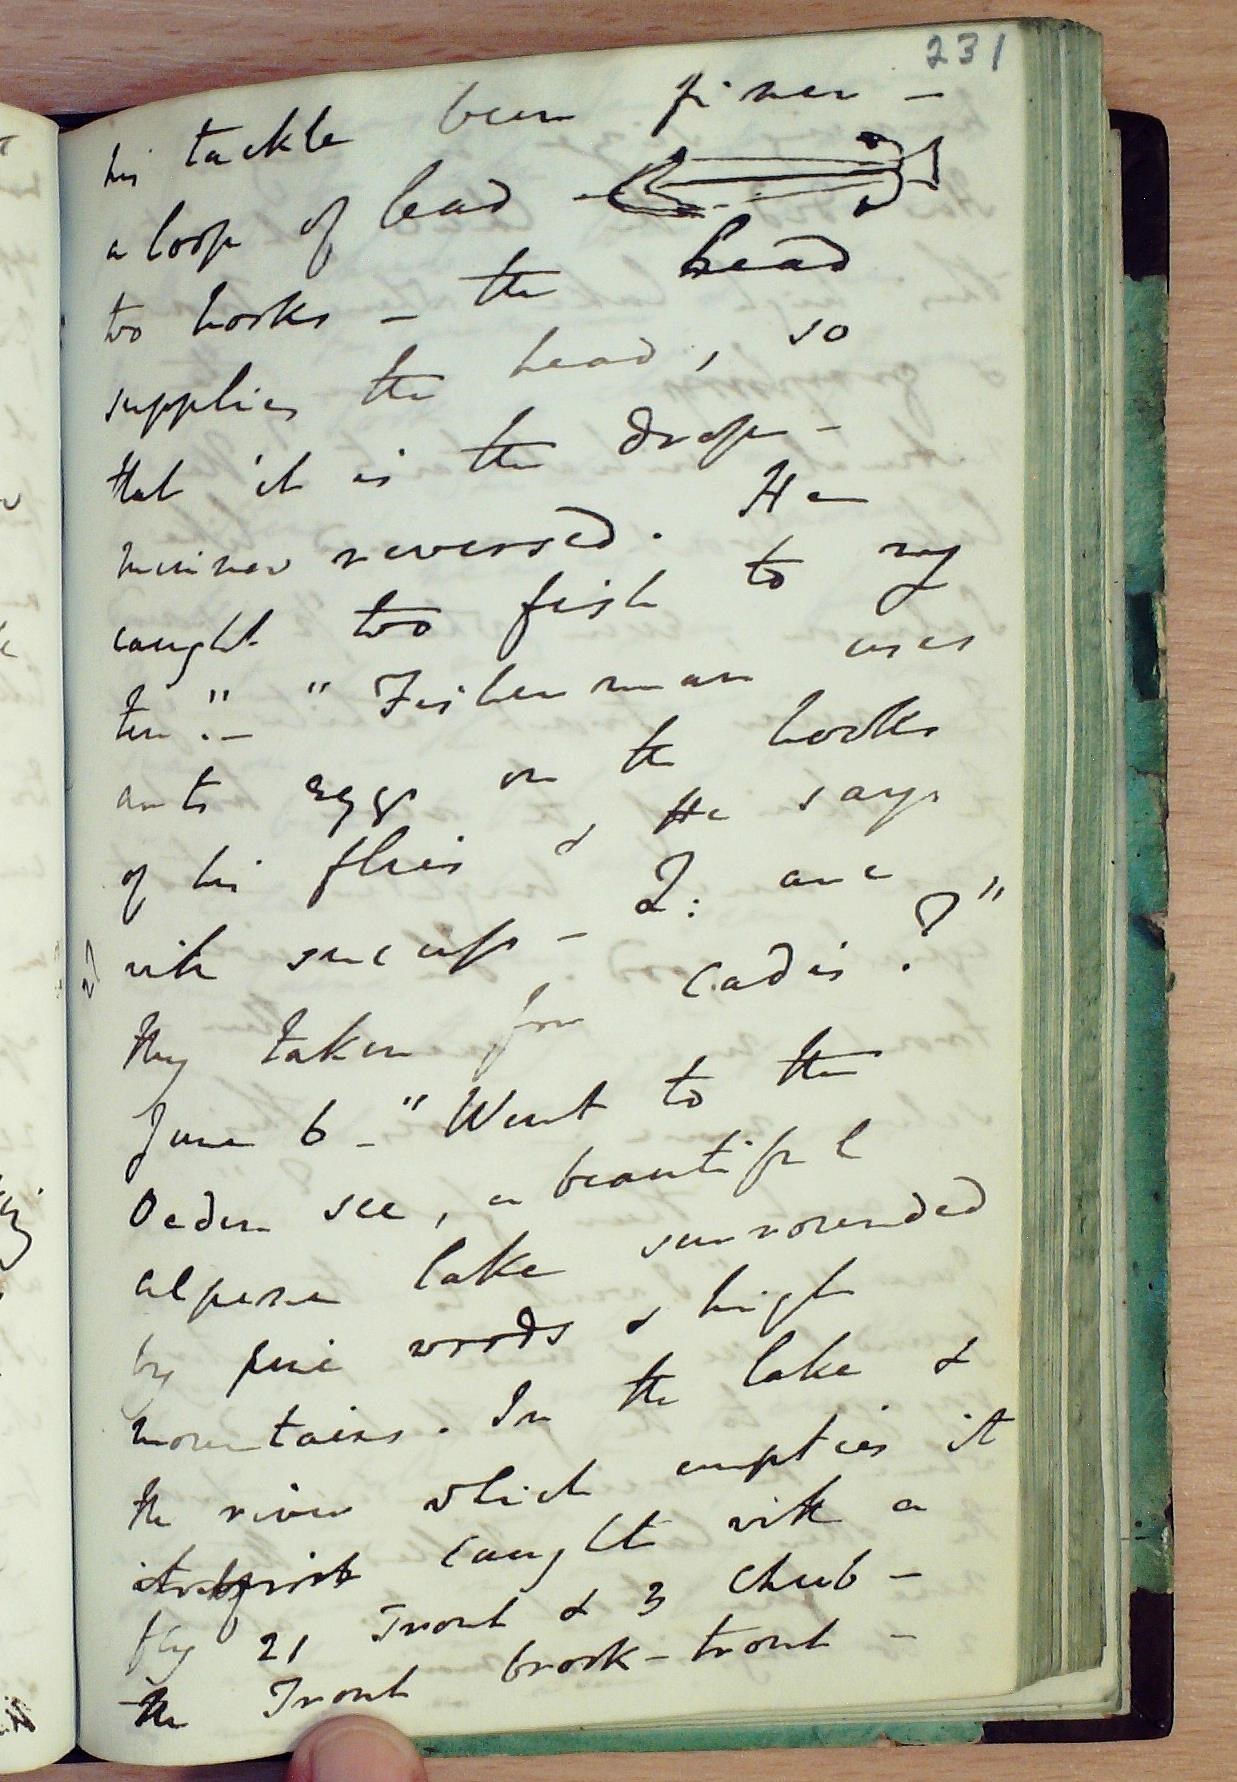 231
his tackle been finer –
a loop of lead
two hooks – the head
supplies the head, so
that it is the drop-
minnow reversed. He
caught two fish to my
ten". – "Fisherman uses
ants eggs on the hooks
of his flies & He says
with success – Q: are
they taken for Cadis?"
27
June 6 – "Went to the
Oeden see, a beautiful
alpine lake surrounded
by pine woods & high
mountains. In the lake &
the river which empties it
caught with a
fly 21 Trout & 3 chub –
the Trout brook-trout –